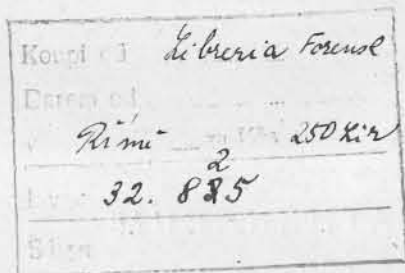 Koupí od Libreria Forense
Darem od
v Římě za Kčs 250 Lir
2
32. 835
Sign.